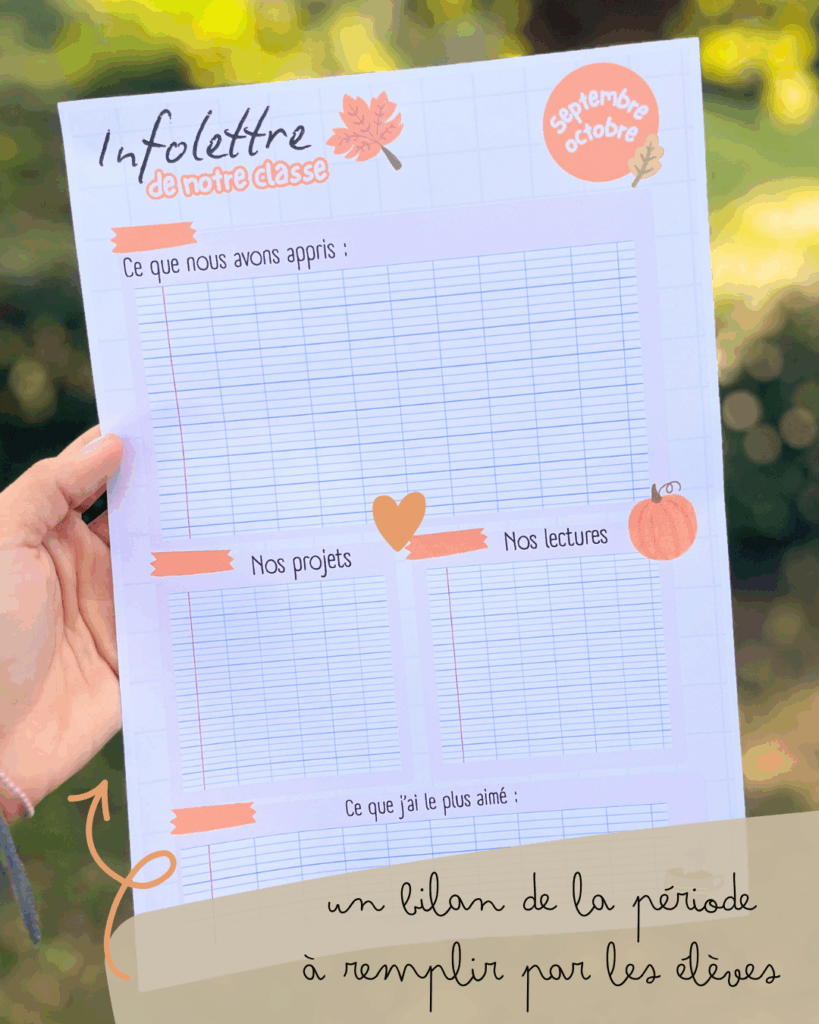 Infolettre
de notre classe
Septembre
octobre
Ce que nous avons appris :
Nos projets
Nos lectures
Ce que j'ai le plus aimé :
un bilan de la période
à remplir par les élèves